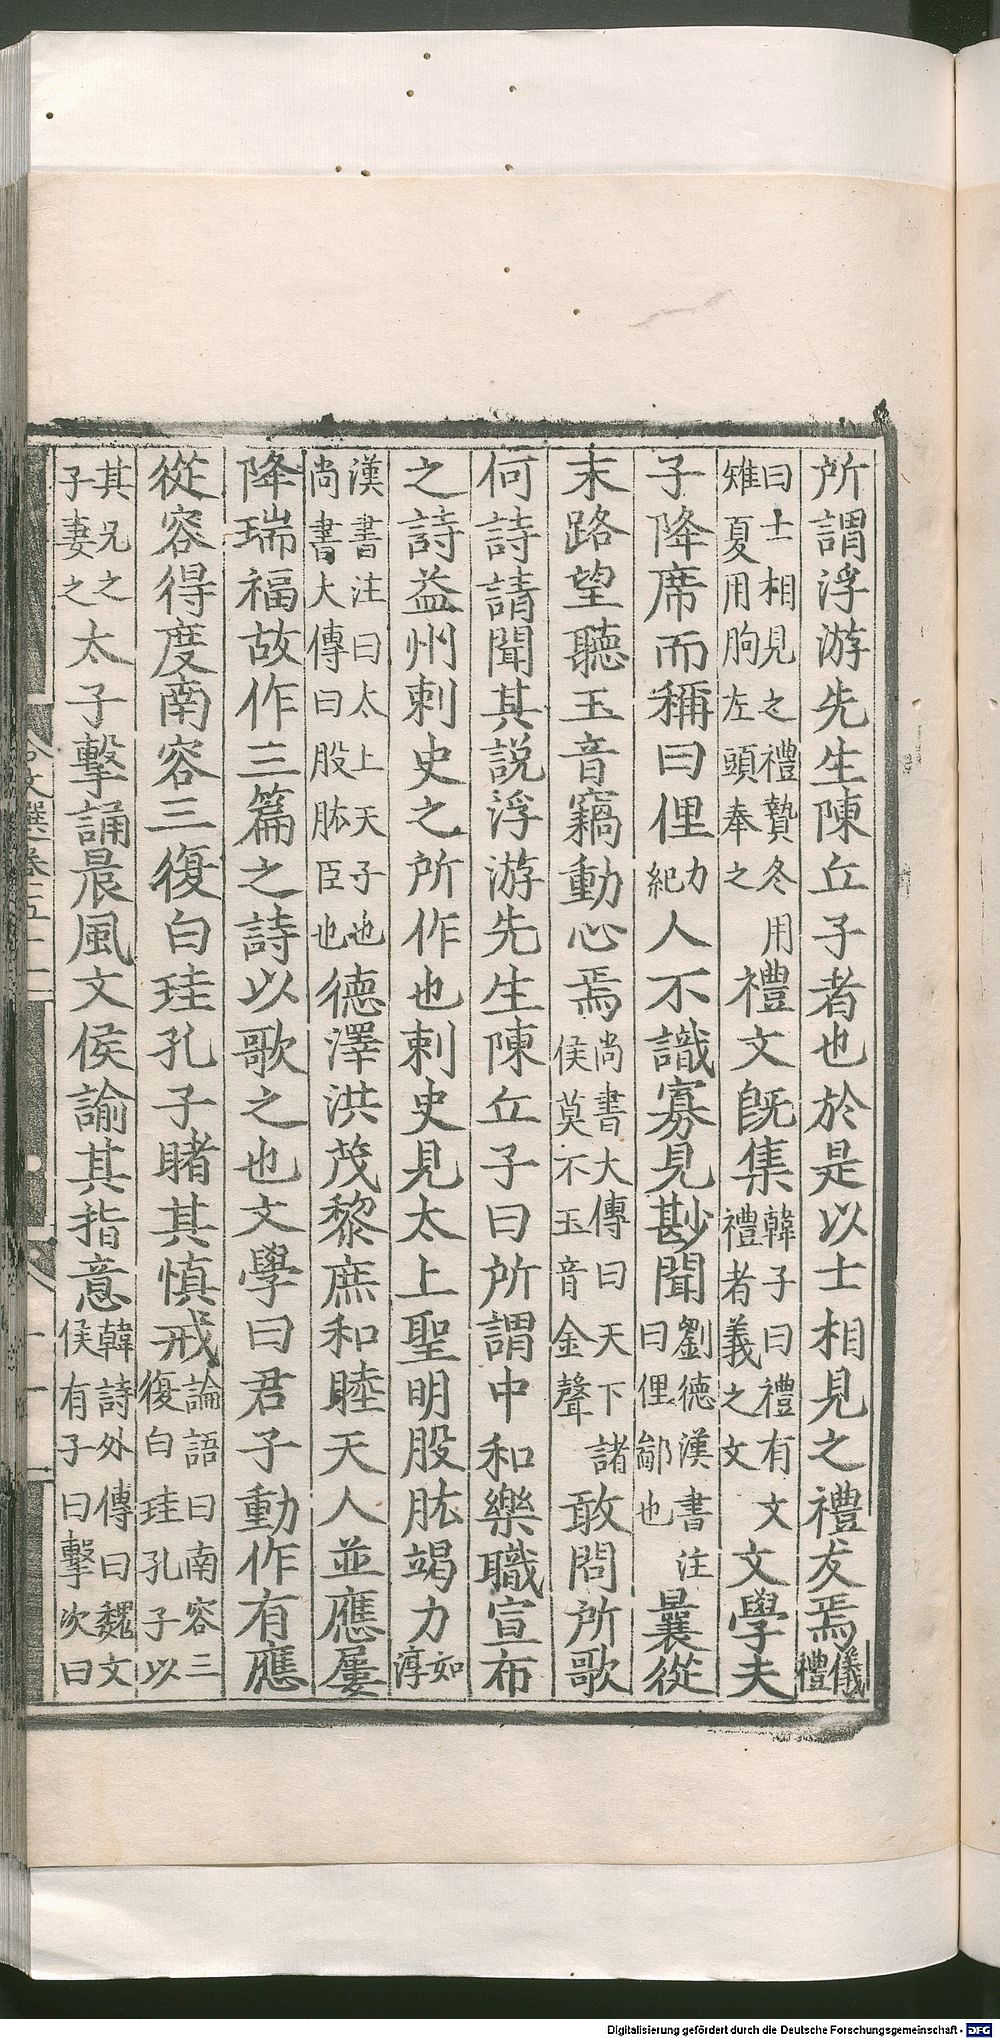 所謂浮游先生陳丘子者也於是以士相見之禮友焉儀禮
曰士相見之禮贄冬用雉夏用胊左頭奉之禮文既集韓子曰禮有文禮者義之文文學夫
子降席而稱曰俚力紀人不識寡見尠聞劉德漢書注曰俚鄙也曩從
末路望聽玉音竊動心焉尚書大傳曰天下諸侯莫不玉音金聲敢問所歌
何詩請聞其説浮游先生陳丘子曰所謂中和樂職宣布
之詩益州刺史之所作也刺史見太上聖明股肱竭力如淳
漢書注曰太上天子也尚書大傳曰股肱臣也德澤洪茂黎庶和睦天人並應屢
降瑞福故作三篇之詩以歌之也文學曰君子動作有應
從容得度南容三復白珪孔子睹其慎戒論語曰南容三復白珪孔子以
其兄之子妻之太子擊誦晨風文侯諭其指意韓詩外傳曰魏文侯有子曰擊次曰
Digitalisierung gefördert durch die Deutsche Forschungsgemeinschaft - DFG